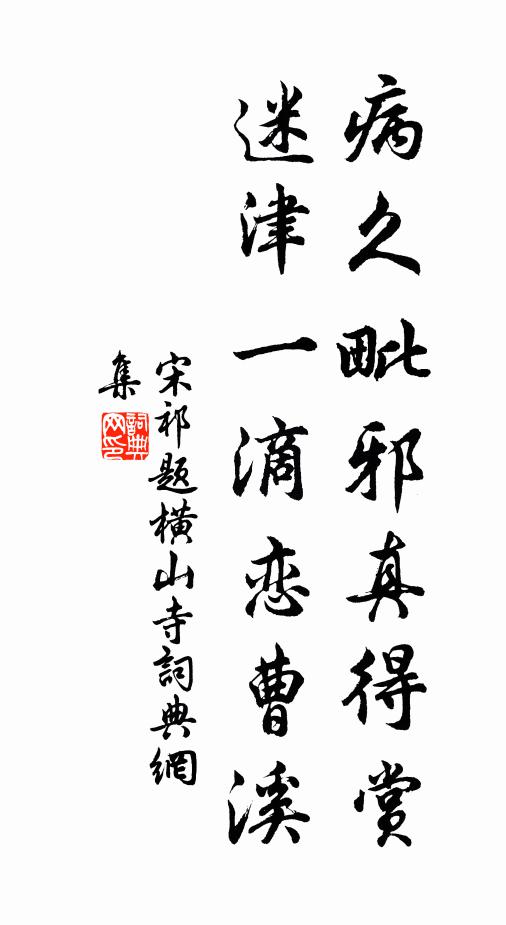 病久毗邪真得赏
迷津一滴恋曹溪
宋祁题橫山寺詞典網
集
詞典网印